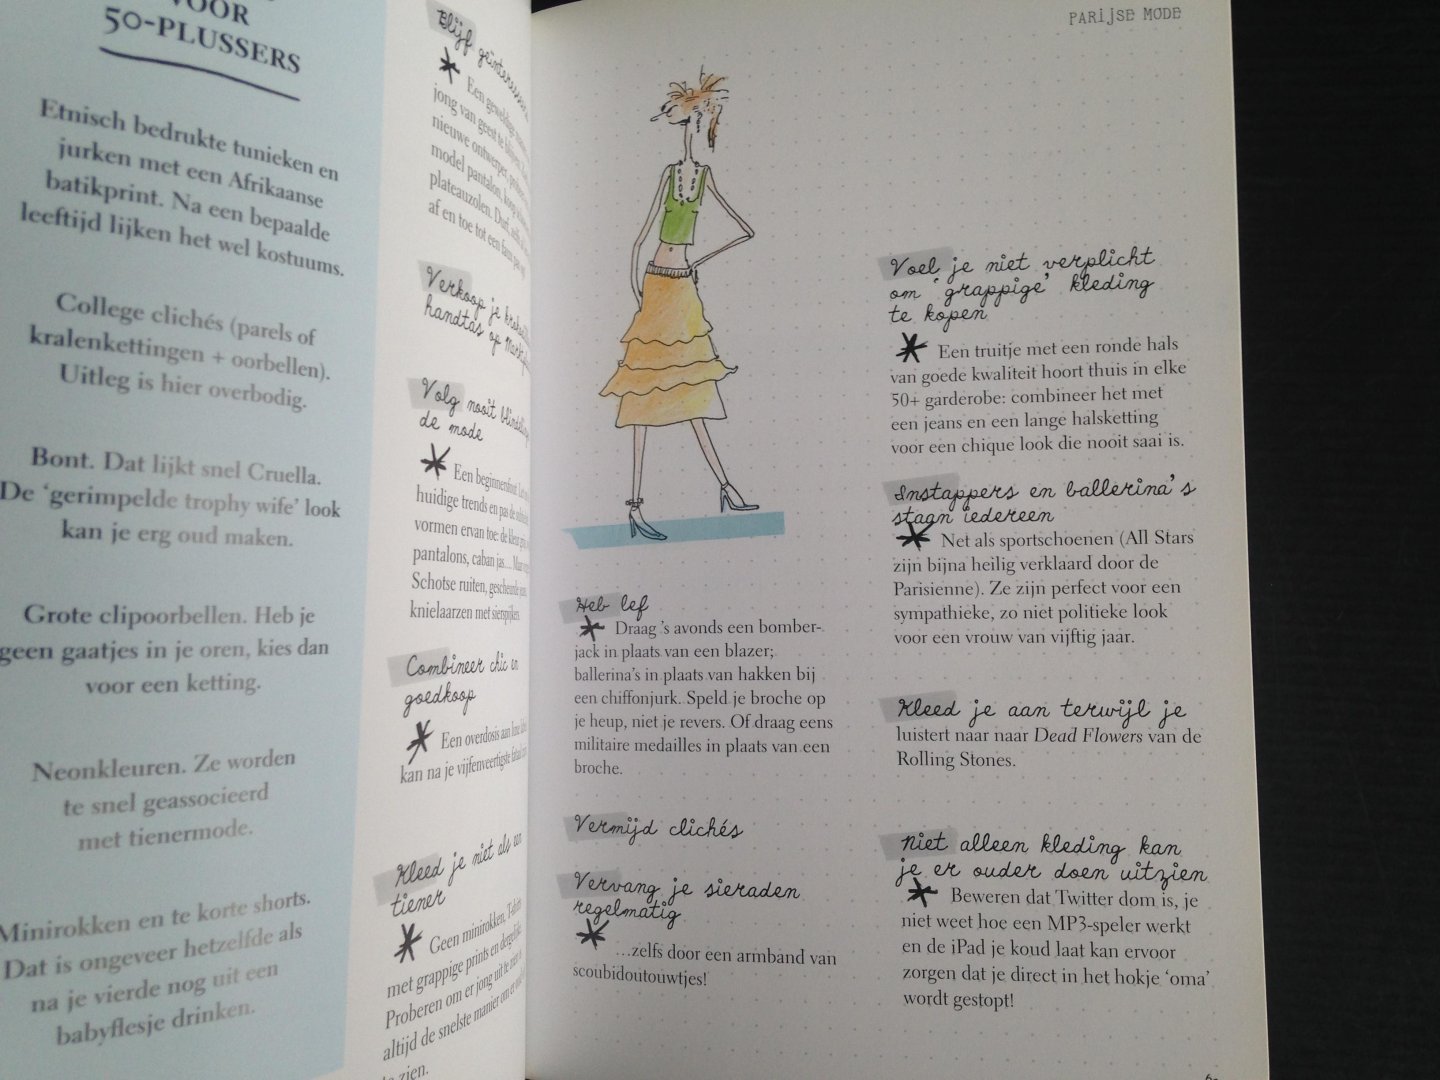 VOOR
50-PLUSSERS
Etnisch bedrukte tunieken en
jurken met een Afrikaanse
batikprint. Na een bepaalde
leeftijd lijken het wel kostuums.
College clichés (parels of
kralenkettingen + oorbellen).
Uitleg is hier overbodig.
Bont. Dat lijkt snel Cruella.
De ‘gerimpelde trophy wife’ look
kan je erg oud maken.
Grote clipoorbellen. Heb je
geen gaatjes in je oren, kies dan
voor een ketting.
Neonkleuren. Ze worden
te snel geassocieerd
met tienermode.
Minirokken en te korte shorts.
Dat is ongeveer hetzelfde als
na je vierde nog uit een
babyflesje drinken.
Blijf
Een geweldige
jong van geest te blijven.
nieuwe ontwerper,
model pantalon, koop
plateauzolen. Durf,
af en toe tot een
Verkoop je
handtas op
Volg nooit
de mode
Een beginnersfout.
huidige trends en pas de
vormen ervan toe: de kleur
pantalons, caban jas... Maar
Schotse ruiten, gescheurde
knielaarzen met siernijen
Combineer chic en
goedkoop
Een overdosis aan
kan na je vijfenveertigste
Kleed je niet als een
tiener
Geen minirokken, T-shirts
met grappige prints en dergelijke.
Proberen om er jong uit te zien is
altijd de snelste manier om er oud
te zien.
PARIJSE MODE
Heb lef
Draag 's avonds een bomber-
jack in plaats van een blazer;
ballerina's in plaats van hakken bij
een chiffonjurk. Speld je broche op
je heup, niet je revers. Of draag eens
militaire medailles in plaats van een
broche.
Vermijd clichés
Vervang je sieraden
regelmatig
...zelfs door een armband van
scoubidoutouwtjes!
Voel je niet verplicht
om ‘grappige’ kleding
te kopen
Een truitje met een ronde hals
van goede kwaliteit hoort thuis in elke
50+ garderobe: combineer het met
een jeans en een lange halsketting
voor een chique look die nooit saai is.
Instappers en ballerina's
staan iedereen
Net als sportschoenen (All Stars
zijn bijna heilig verklaard door de
Parisienne). Ze zijn perfect voor een
sympathieke, zo niet politieke look
voor een vrouw van vijftig jaar.
Kleed je aan terwijl je
luistert naar naar Dead Flowers van de
Rolling Stones.
Niet alleen kleding kan
je er ouder doen uitzien
Beweren dat Twitter dom is, je
niet weet hoe een MP3-speler werkt
en de iPad je koud laat kan ervoor
zorgen dat je direct in het hokje ‘oma’
wordt gestopt!